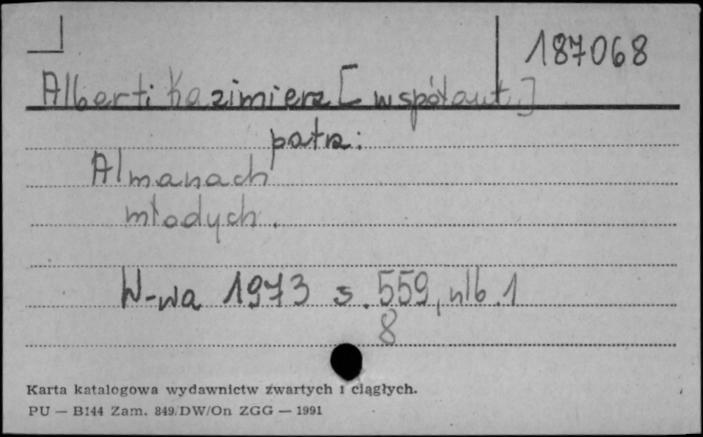 187068
Alberti Kazimierz [współaut.]
patrz:
Almanach
młodych.
W-wa 1973 s. 559, nlb. 1
8
Karta katalogowa wydawnictw zwartych i ciągłych.
PU — B144 Zam. 849/DW/On ZGG — 1991